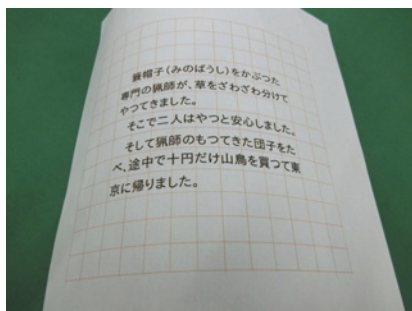 簑帽子(みのぼうし)をかぶつた
専門の猟師が、草をざわざわ分けて
やつてきました。
そこで二人はやつと安心しました。
そして猟師のもつてきた団子をた
べ、途中で十円だけ山鳥を買つて東
京に帰りました。